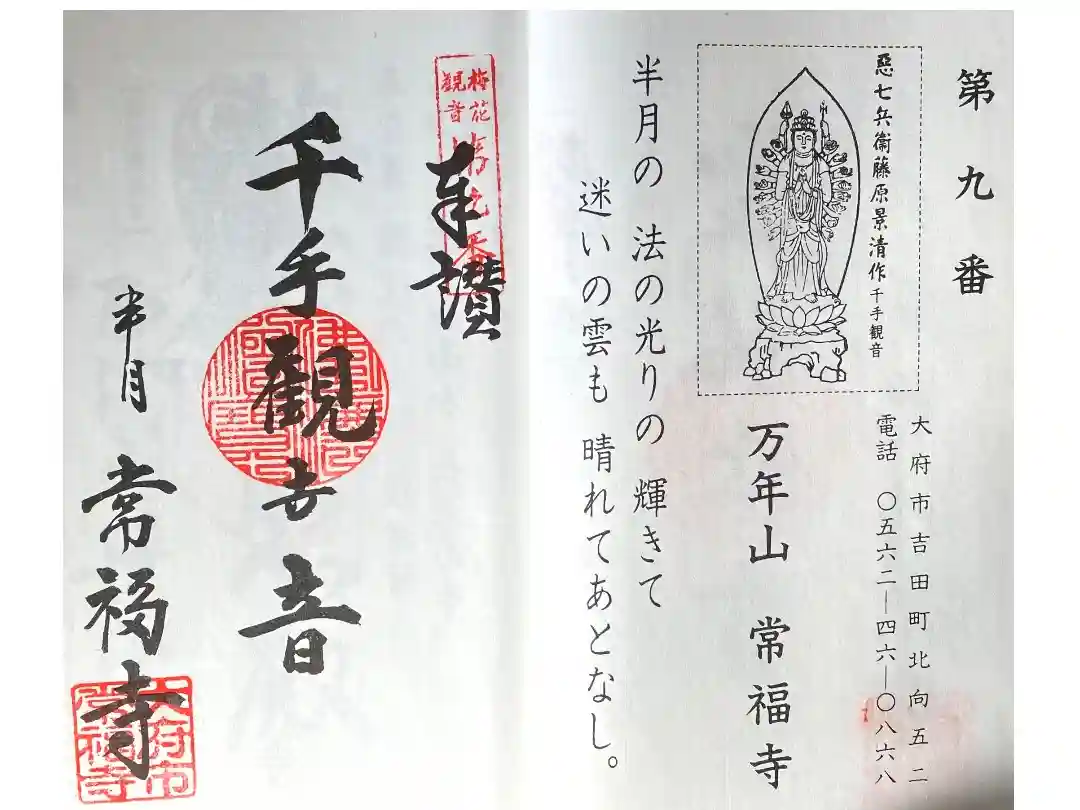 第九番
惡七兵衞藤原景清作千手観音
大府市吉田町北向五二
電話 〇五六二―四六―〇八六八
万年山 常福寺
半月の 法の光りの 輝きて
迷いの雲も 晴れてあとなし。
奉讃
梅花
観音
千手観世音
半月 常福寺
大府市
常福寺